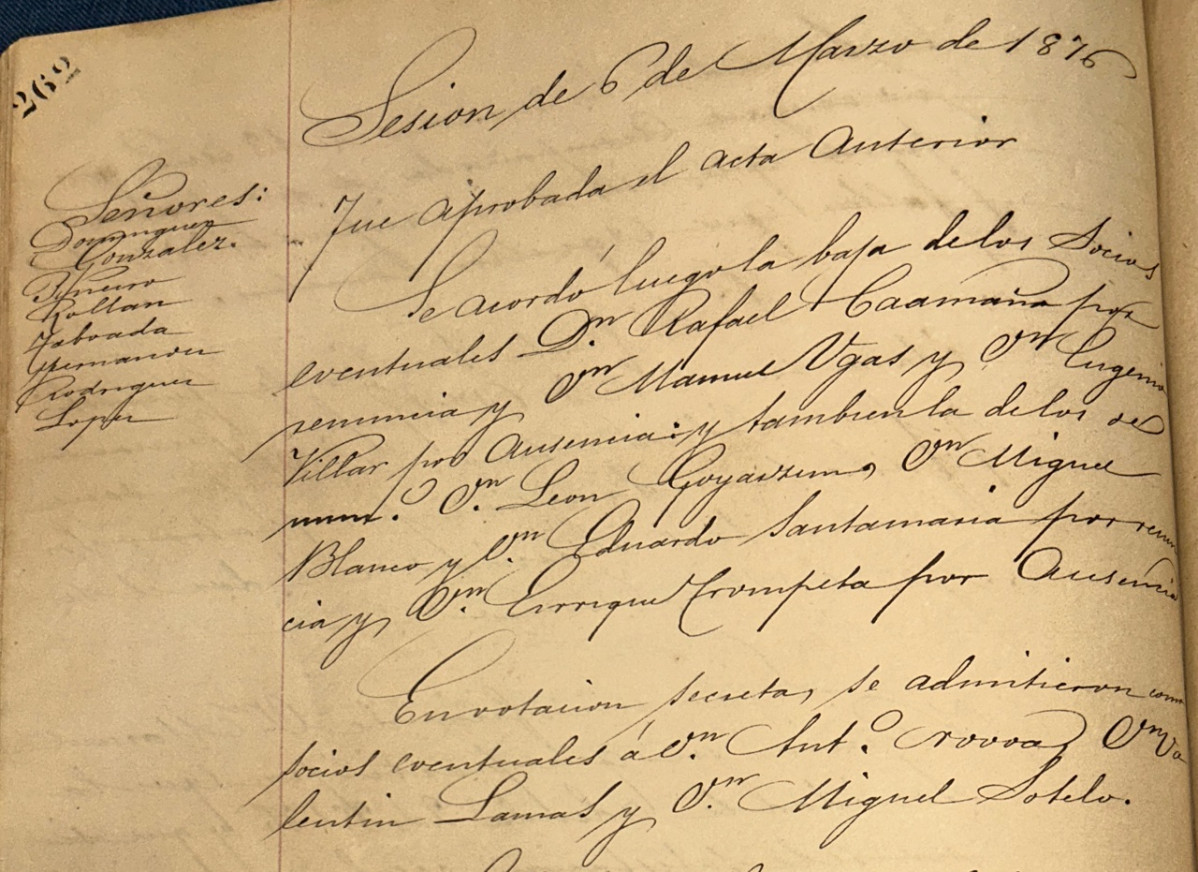 262
Sesion de 6 de Marzo de 1876
Señores:
Dominguez
Gonzalez.
Piñeiro
Roldan
Taboada
Hernandez
Rodriguez
Lopez
Fue aprobada el acta anterior
Se acordó luego la baja de los Socios
eventuales Dn Rafael Caamaño por
renuncia y Dn Manuel Vgas y Dn Eugenio
Villar por ausencia: y tambien la de los de
num.o Dn. Leon, Dn Miguel
Blanco y Dn. Eduardo Santamaria por renun
cia y Dn. Enrique Trompeta por Ausencia
En votacion secreta, se admitieron como
socios eventuales á Dn. Ant.o Novoa, Dn Va
lentin Lamas y Dn. Miguel Sotelo.